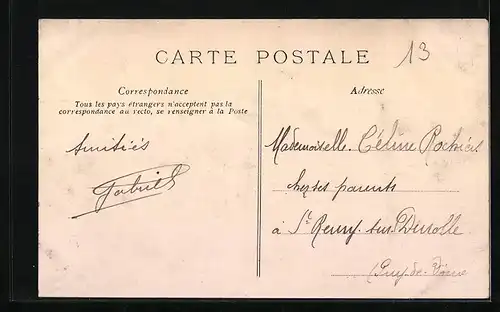 CARTE POSTALE
13
Correspondance
Tous les pays étrangers n'acceptent pas la
correspondance au recto, se renseigner à la Poste
Amitiés
Gabriel
Adresse
Mademoiselle Céline
chez ses parents
à St Remy sur Durolle
(Puy-de-Dôme